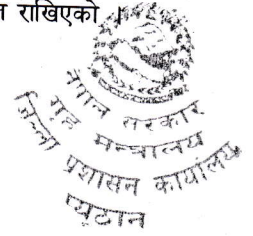 राखिएको ।
नेपाल सरकार
गृह मन्त्रालय
जिल्ला प्रशासन कार्यालय
प्यूठान